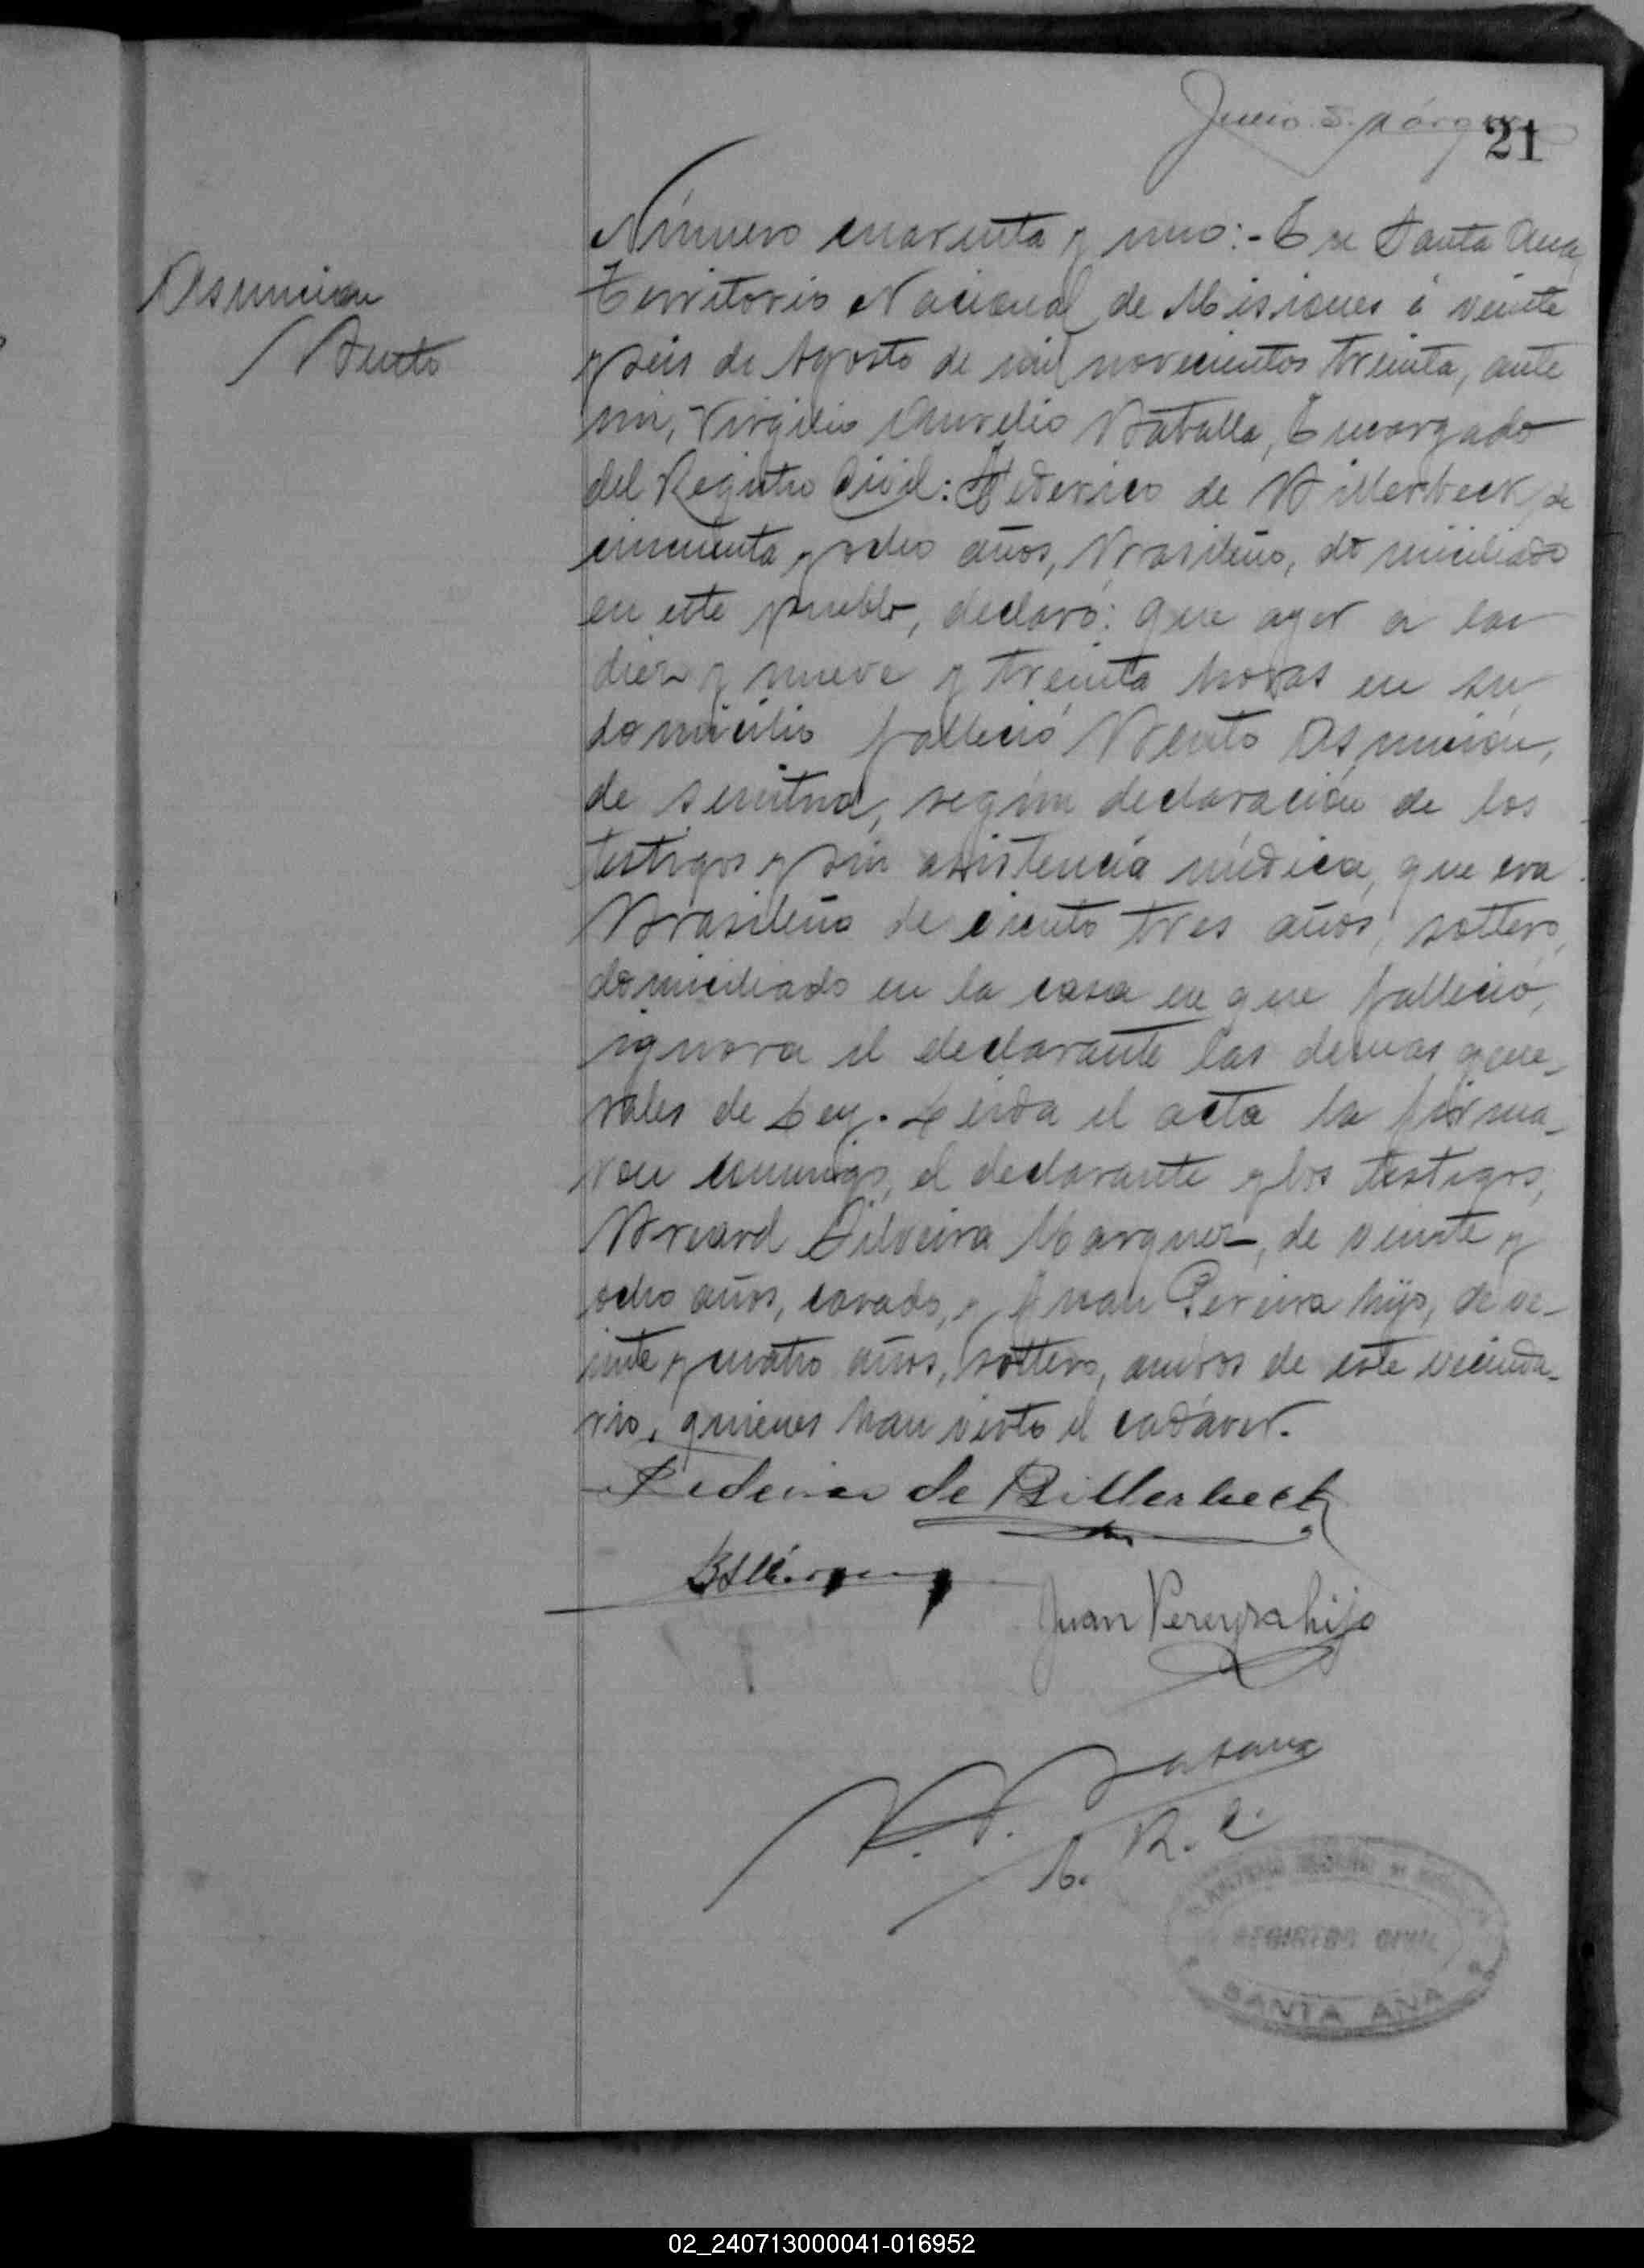 21
Número cuarenta y uno:- En Santa Ana,
Territorio Nacional de Misiones á veinte
y seis de Agosto de mil novecientos treinta, ante
mi, Virgilio Aurelio Batalla, Encargado
del Registro Civil: Federico de Billerbeck, de
cincuenta y ocho años, Brasileño, domiciliado
en este pueblo, declaró: que ayer a las
diez y nueve y treinta horas en su
domicilio falleció Bento Asunción,
de senitud, según declaración de los
testigos y sin asistencia médica, que era
Brasileño de ciento tres años, soltero,
domiciliado en la casa en que falleció,
ignora el declarante las demas gene-
rales de Ley. Leida el acta la firma-
ron conmigo, el declarante y los testigos,
Silveira Marquez, de veinte y
ocho años, casado, y Juan Pereira hijo, de ve-
inte y cuatro años, soltero, ambos de este vecinda-
rio, quienes han visto el cadáver.
Asuncion
Bento
Federico de Billerbeck
Juan Pereyra hijo
E. R. C.
REGISTRO CIVIL
SANTA ANA
02_240713000041-016952